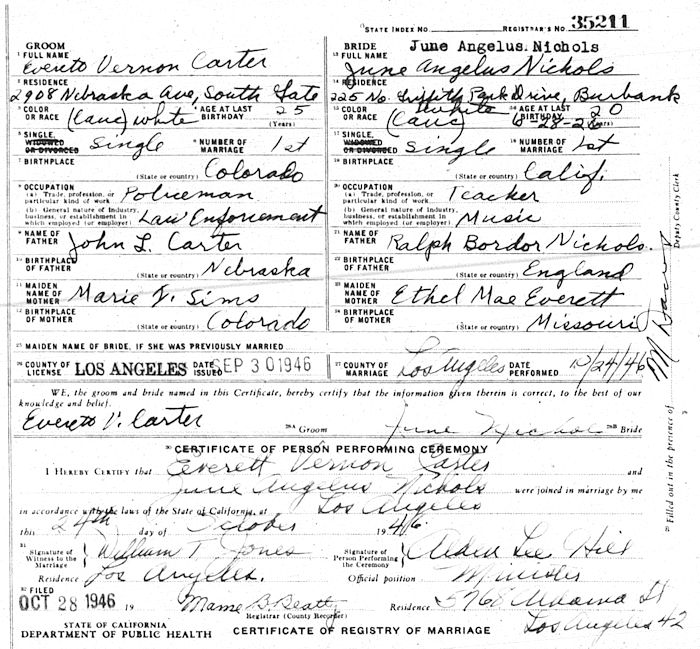 STATE INDEX NO. REGISTRAR'S NO. 35211
GROOM
1 FULL NAME
Evereto Vernon Carter
BRIDE June Angelus Nichols
13 FULL NAME
June Angelus Nichols
2 RESIDENCE
2908 Nebraska Ave, South Gate
14 RESIDENCE
225 No. Griffith Park Drive, Burbank
3 COLOR OR RACE (Cauc) white 4 AGE AT LAST BIRTHDAY 25 (Years)
15 COLOR OR RACE (Cauc) white 16 AGE AT LAST BIRTHDAY 20
5 SINGLE, WIDOWED OR DIVORCED Single 6 NUMBER OF MARRIAGE 1st
17 SINGLE, WIDOWED OR DIVORCED Single 18 NUMBER OF MARRIAGE 1st
7 BIRTHPLACE (State or country) Colorado
19 BIRTHPLACE (State or country) Calif.
8 OCCUPATION
(a) Trade, profession, or particular kind of work Policeman
(b) General nature of industry, business, or establishment in which employed (or employer) Law Enforcement
20 OCCUPATION
(a) Trade, profession, or particular kind of work Teacher
(b) General nature of industry, business, or establishment in which employed (or employer) Music
9 NAME OF FATHER John L. Carter
21 NAME OF FATHER Ralph Bordor Nichols.
10 BIRTHPLACE OF FATHER (State or country) Nebraska
22 BIRTHPLACE OF FATHER (State or country) England
11 MAIDEN NAME OF MOTHER Marie V. Sims
23 MAIDEN NAME OF MOTHER Ethel Mae Everett
12 BIRTHPLACE OF MOTHER (State or country) Colorado
24 BIRTHPLACE OF MOTHER (State or country) Missouri
25 MAIDEN NAME OF BRIDE, IF SHE WAS PREVIOUSLY MARRIED
26 COUNTY OF LICENSE LOS ANGELES DATE ISSUED SEP 30 1946
27 COUNTY OF MARRIAGE Los Angeles DATE PERFORMED 10/24/46
WE, the groom and bride named in this Certificate, hereby certify that the information given therein is correct, to the best of our
knowledge and belief.
Evereto V. Carter 28A Groom June Nichols 28B Bride
29 Filled out in the presence of M Deputy County Clerk
30 CERTIFICATE OF PERSON PERFORMING CEREMONY
I HEREBY CERTIFY that Everett Vernon Carter and
June Angelus Nichols were joined in marriage by me
in accordance with the laws of the State of California, at Los Angeles
this 24th day of October 1946.
31 Signature of Witness to the Marriage William T. Jones
Signature of Person Performing the Ceremony Lee Hill
Residence Los Angeles.
Official position Minister
32 FILED
OCT 28 1946 19 Mame B. Beatty
Registrar (County Recorder)
Residence 5768 St
Los Angeles 42
STATE OF CALIFORNIA
DEPARTMENT OF PUBLIC HEALTH
CERTIFICATE OF REGISTRY OF MARRIAGE